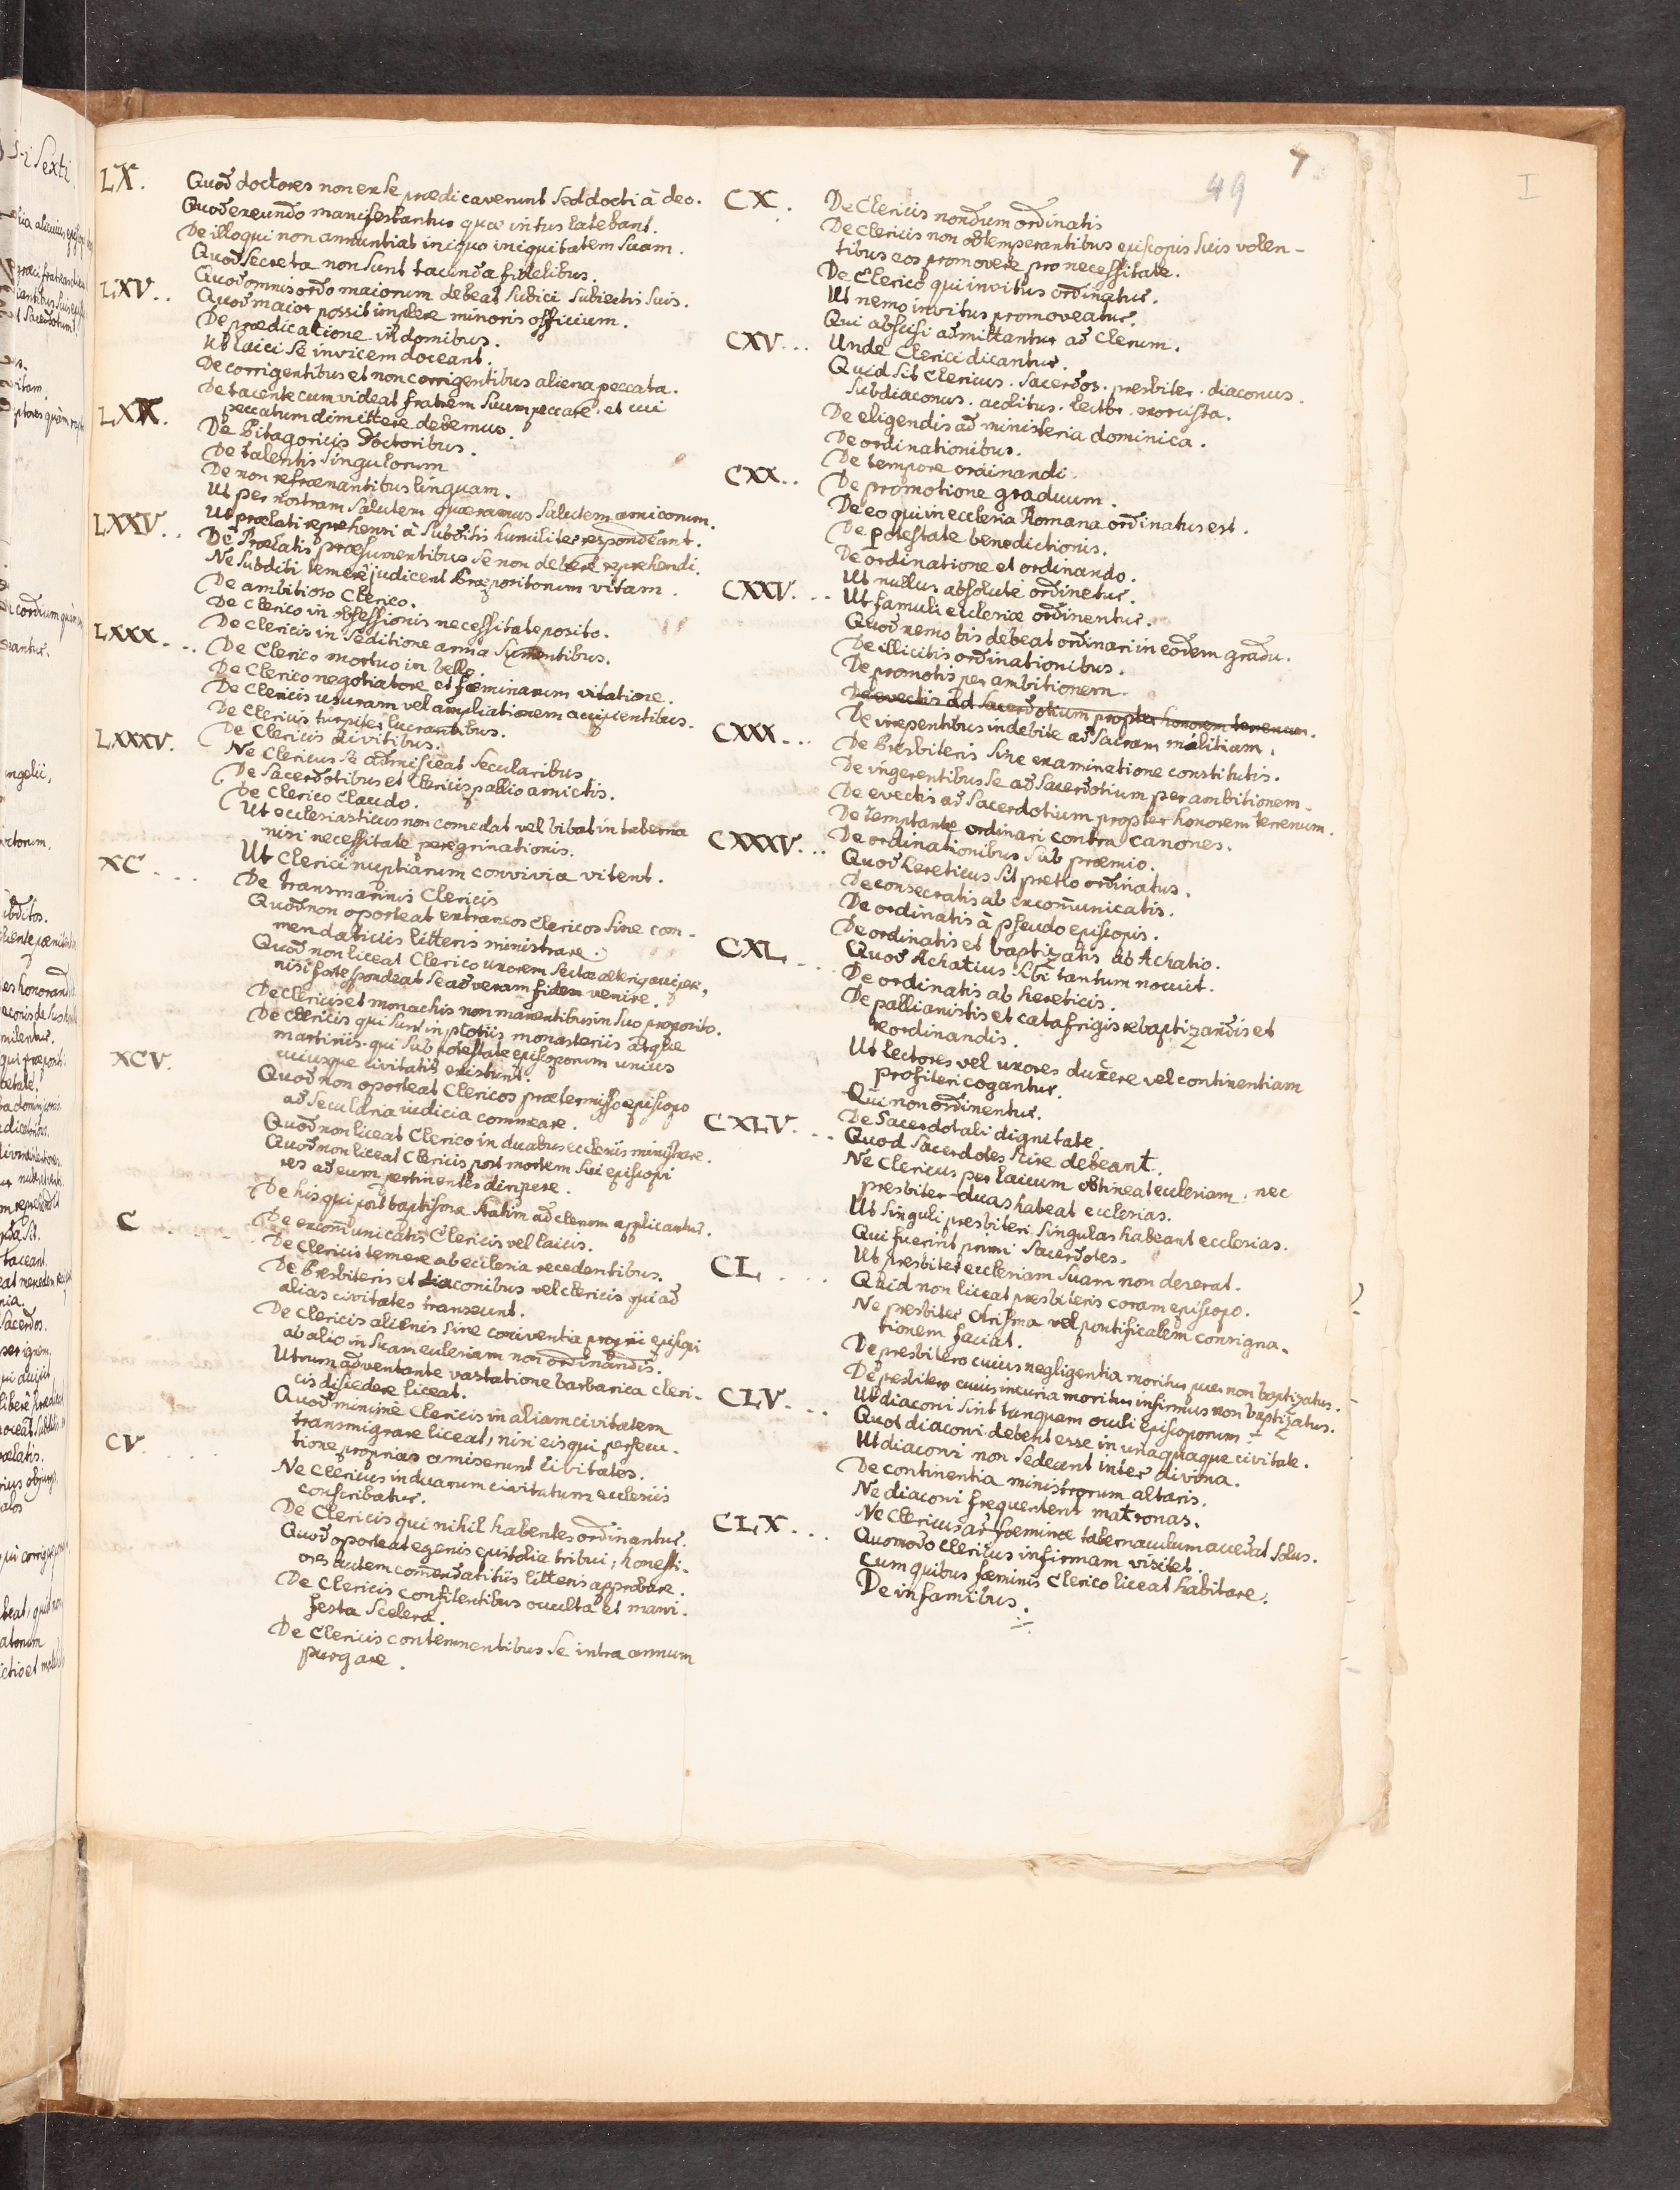 7
49
I
LX. Quod doctores non ex se prædicaverunt sed docti à deo.
Quod exeundo manifestantur quæ intus latebant.
De illo qui non annuntiat iniquo iniquitatem suam.
Quod secreta non sunt tacenda fidelibus.
Quod omnis ordo maiorum debeat subici subiectis suis.
LXV.. Quod maior possit implere minoris officium.
De prædicatione in domibus.
Ut laici se invicem doceant.
De corrigentibus et non corrigentibus aliena peccata.
De tacente cum videat fratrem suum peccare. et cui
peccatum dimittere debemus.
LXX. De Pitagoricis doctoribus.
De talentis singulorum
De non refrænantibus linguam.
Ut per nostram salutem quæramus salutem amicorum.
Ut prælati reprehensi à subditis humiliter respondeant.
LXXV.. De Prælatis præsumentibus se non debere reprehendi.
Ne subditi temerè judicent Præpositorum vitam.
De ambitioso Clerico.
De Clerico in obsessionis necessitate posito.
De Clericis in seditione arma sumentibus.
LXXX... De Clerico mortuo in bello.
De Clerico negotiatore et fæminarum vitatione.
De Clericis usuram vel ampliationem accipientibus.
De Clericis turpiter lucrantibus.
De Clericis divitibus.
LXXXV. Ne Clericus se admisceat secularibus
De Sacerdotibus et Clericis pallio amictis.
De Clerico Claudo.
Ut ecclesiasticus non comedat vel bibat in taberna
nisi necessitate peregrinationis.
Ut Clerici nuptiarum convivia vitent.
XC... De transmarinis Clericis
Quod non oporteat extraneos Clericos sine com-
mendaticiis litteris ministrare.
Quod non liceat Clerico uxorem sectæ alterius accipere,
nisi forte spondeat se ad veram fidem venire.
De Clericis et monachis non manentibus in suo proposito.
De Clericis qui sunt in ptotiis monasteriis atque
martiriis. qui sub potestate episcoporum unius
cuiusque civitatis existunt.
XCV. Quod non oporteat Clericos prætermisso episcopo
ad secularia iudicia commeare.
Quod non liceat Clerico in duabus ecclesiis ministrare.
Quod non liceat Clericis post mortem sui episcopi
res ad eum pertinentes diripere.
De his qui post baptisma statim ad clerum applicantur.
C... De excom̄unicatis Clericis vel laicis.
De Clericis temere ab ecclesia recedentibus.
De Presbiteris et diaconibus vel clericis qui ad
alias civitates transeunt.
De Clericis alienis sine coniventia proprii episcopi
ab alio in suam ecclesiam non ordinandis.
Utrum adventante vastatione barbarica cleri-
cis discedere liceat.
Quod minimè Clericis in aliam civitatem
transmigrare liceat, nisi eis qui persecu-
tione proprias amiserunt civitates.
CV... Ne Clericus in duarum civitatum ecclesiis
conscribatur.
De Clericis qui nihil habentes ordinantur.
Quod oporteat egenis epistolia tribui, honesti-
ores autem com̄endatitiis litteris approbare.
De Clericis confitentibus occulta et mani-
festa scelera.
De Clericis contemnentibus se intra annum
purgare.
CX. De Clericis nondum ordinatis
De Clericis non obtemperantibus episcopis suis volen-
tibus eos promovere pro necessitate.
De Clerico qui invitus ordinatur.
Ut nemo invitus promoveatur.
Qui abscisi admittantur ad Clerum.
CXV... Unde Clerici dicantur.
Quid sit Clericus. sacerdos. presbiter. diaconus.
Subdiaconus. acolitus. lector. exorcista.
De eligendis ad ministeria dominica.
De ordinationibus.
De tempore ordinandi.
CXX.. De promotione graduum.
De eo qui in ecclesia Romana ordinatus est.
De potestate benedictionis.
De ordinatione et ordinando.
Ut nullus absolutè ordinetur.
CXXV... Ut famuli ecclesiæ ordinentur.
Quod nemo bis debeat ordinari in eodem gradu.
De illicitis ordinationibus.
De promotis per ambitionem.
De evectis ad sacerdotium propter honorem terrenum.
De irrepentibus indebite ad sacram militiam.
CXXX... De Presbiteris sine examinatione constitutis.
De ingerentibus se ad sacerdotium per ambitionem.
De evectis ad sacerdotium propter honorem terrenum.
De temptante ordinari contra canones.
De ordinationibus sub præmio.
CXXXV... Quod hereticus sit pretio ordinatus.
De consecratis ab excom̄unicatis.
De ordinatis à pseudo episcopis.
De ordinatis et baptizatis ab Achatio.
Quod Achatius sibi tantum nocuit.
CXL... De ordinatis ab hereticis.
De pallianistis et catafrigis rebaptizandis et
reordinandis.
Ut lectores vel uxores ducere vel continentiam
profiteri cogantur.
Qui non ordinentur.
De Sacerdotali dignitate.
CXLV... Quod sacerdotes scire debeant.
Ne Clericus per laicum obtineat ecclesiam. nec
presbiter duas habeat ecclesias.
Ut singuli presbiteri singulas habeant ecclesias.
Qui fuerint primi sacerdotes.
Ut presbiter ecclesiam suam non deserat.
CL.... Quid non liceat presbiteris coram episcopo.
Ne presbiter chrisma vel pontificalem consigna-
tionem faciat.
De presbitero cuius negligentia moritur puer non baptizatus.
De presbitero cuius incuria moritur infirmus non baptizatus.
Ut diaconi sint tanquam oculi Episcoporum.
CLV... Quot diaconi debent esse in unaquaque civitate.
Ut diaconi non sedeant inter divina.
De continentia ministrorum altaris.
Ne diaconi frequentent matronas.
Ne Clericus ad fœminæ tabernaculum accedat solus.
CLX... Quomodo Clericus infirmam visitet.
Cum quibus fæminis Clerico liceat habitare.
De infamibus.